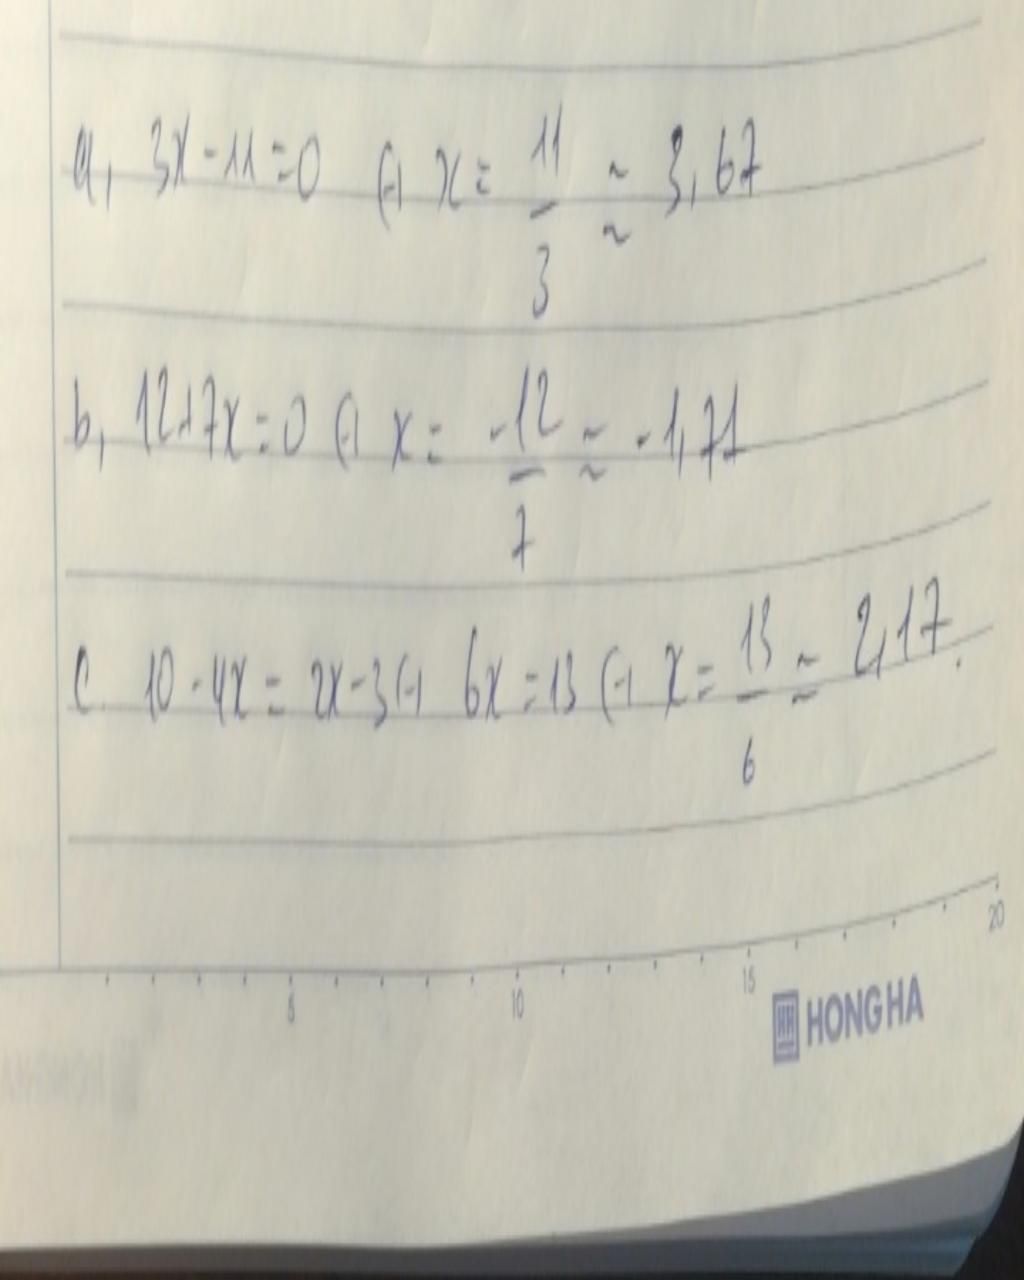 a, 3x - 11 = 0 (=) x = 11/3 ≈ 3,67
b, 12+7x = 0 (=) x = -12/7 ≈ -1,71
c. 10 - 4x = 2x - 3 (=) 6x = 13 (=) x = 13/6 ≈ 2,17.
5 10 15 20
HH HONG HA